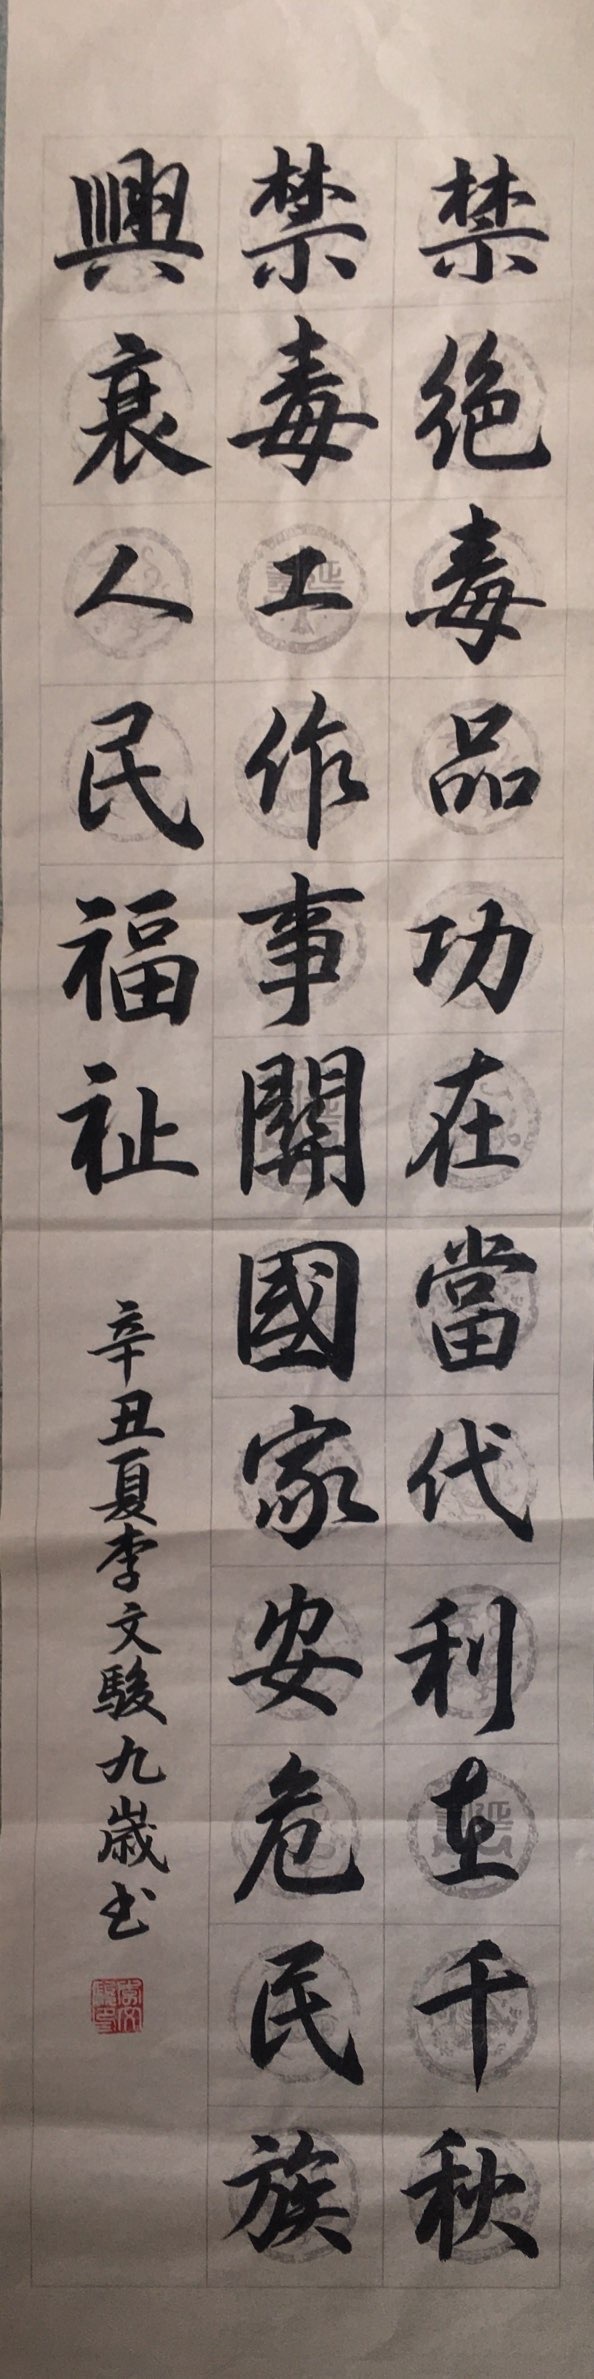 禁絕毒品功在當代利在千秋
禁毒工作事關國家安危民族
興衰人民福祉
辛丑夏李文駿九歲书